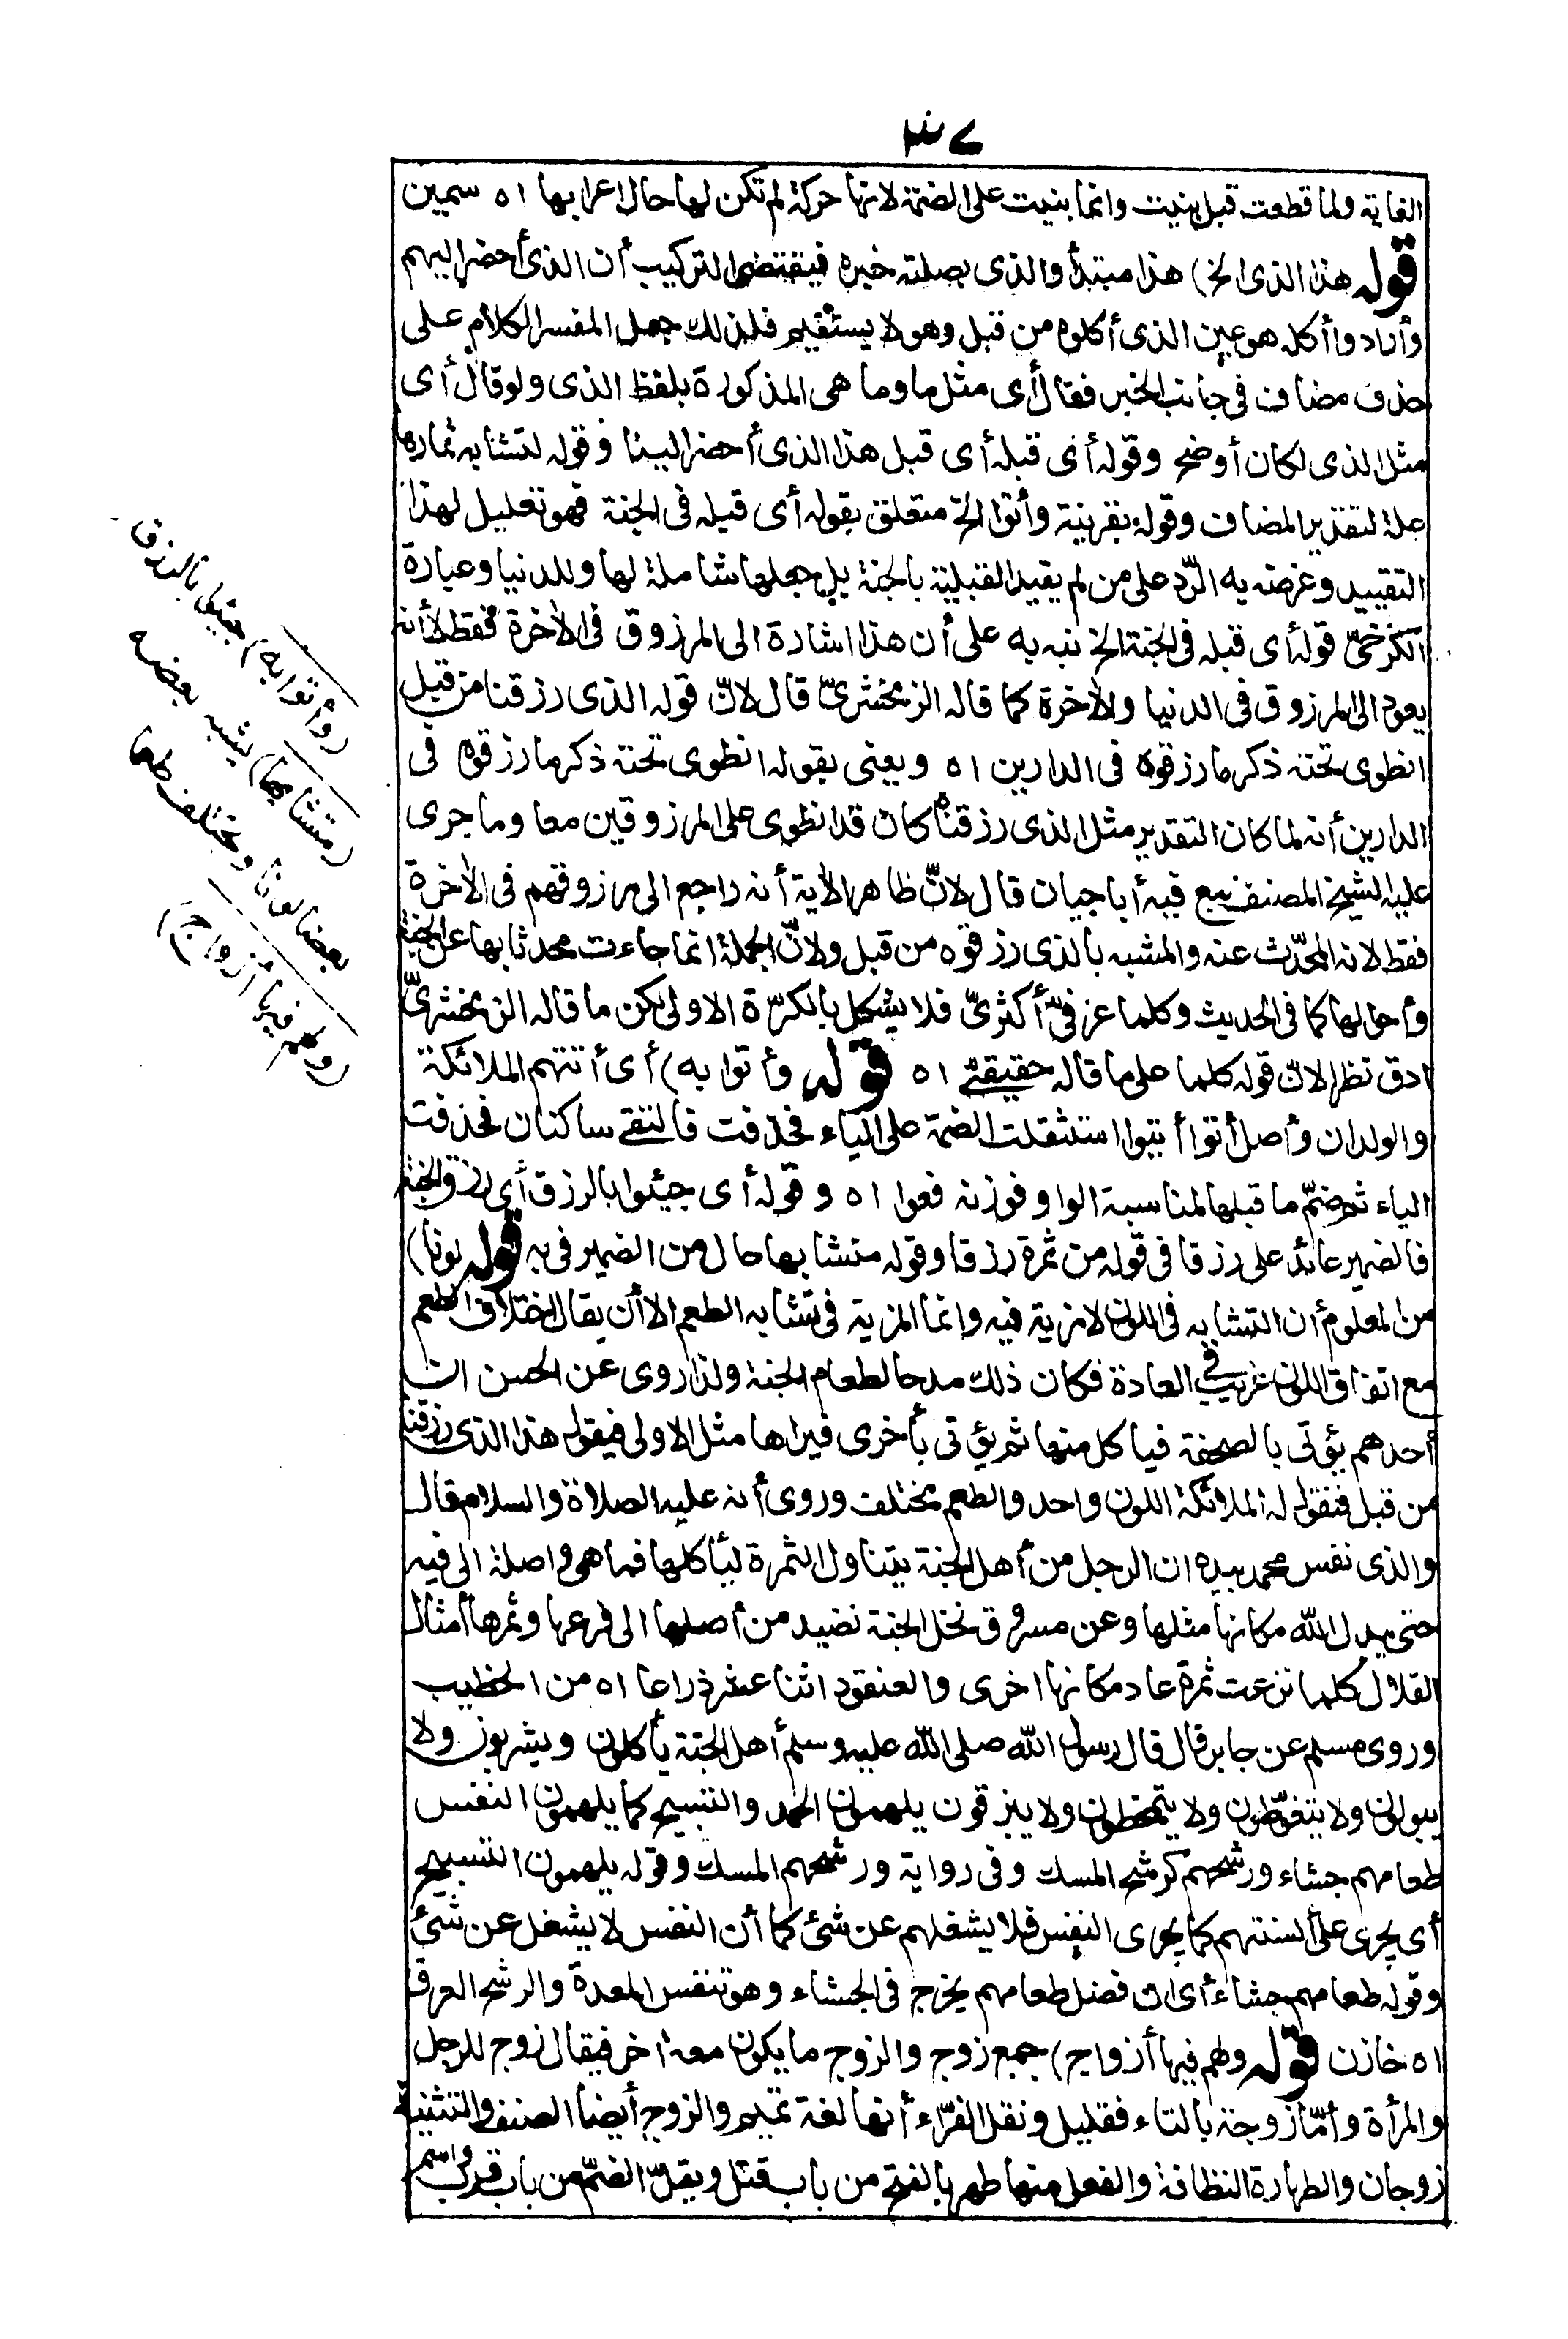 ٣٧
الغاية ولما قطعت قبل بنيت وانما بنيت على الضمة لانها حركة لم تكن لها حال اعرابها اه سمين
قوله هذا الذى الخ) هذا مبتدأ والذى بصلته خبره فيقتضى التركيب أن الذى أحضر اليهم
وأرادوا أكله هو عين الذى أكلوه من قبل وهو لا يستقيم فلذلك جعل المفسر الكلام على
حذف مضاف فى جانب الخبر فقال أى مثل ما وما هى المذكورة بلفظ الذى ولو قال أى
مثل الذى لكان أوضح وقوله أى قبله أى قبل هذا الذى أحضر الينا وقوله لتشابه ثمارها
علة لتقدير المضاف وقوله بقرينة وأتوا الخ متعلق بقوله أى قبله فى الجنة فهو تعليل لهذا
التقييد وغرضه به الرّد على من لم يقيد القبلية بالجنة بل جعلها شاملة لها وللدنيا وعبارة
الكرخىّ قوله أى قبله فى الجنة الخ نبه به على أن هذا اشارة الى المرزوق فى الآخرة فقط لا أنه
يعود الى المرزوق فى الدنيا والآخرة كما قاله الزمخشرىّ قال لانّ قوله الذى رزقنا من قبل
انطوى تحته ذكر ما رزقوه فى الدارين اه ويعنى بقوله انطوى تحته ذكر ما رزقوه فى
الدارين أنه لما كان التقدير مثل الذى رزقناه كان قد انطوى على المرزوقين معا وما جرى
عليه الشيخ المصنف تبع فيه أبا حيان قال لانّ ظاهر الآية أنه راجع الى مرزوقهم فى الآخرة
فقط لانه المحدّث عنه والمشبه بالذى رزقوه من قبل ولانّ الجملة انما جاءت محدثا بها عن الجنة
وأحوالها كما فى الحديث وكلما عرفىّ أكثرىّ فلا يشكل بالكرّة الاولى لكن ما قاله الزمخشرىّ
ادق نظرا لانّ قوله كلما على ما قاله حقيقىّ اه قوله وأتوا به) أى أتتهم الملائكة
والولدان وأصل أتوا أتيوا استثقلت الضمة على الياء فحذفت فالتقى ساكنان فحذفت
الياء ثم ضمّ ما قبلها لمناسبة الواو فوزنه فعوا اه وقوله أى جيئوا بالرزق أى رزق الجنة
فالضمير عائد على رزقا فى قوله من ثمرة رزقا وقوله متشابها حال من الضمير فى به قوله لونا)
من المعلوم أن التشابه فى اللون لا مزية فيه وانما المزية فى تشابه الطعم الا أن يقال اختلاف الطعم
مع اتفاق اللون غريب فى العادة فكان ذلك مدحا لطعام الجنة ولذا روى عن الحسن ان
أحدهم يؤتى بالصحفة فيأكل منها ثم يؤتى بأخرى فيراها مثل الاولى فيقول هذا الذى رزقنا
من قبل فتقول له الملائكة اللون واحد والطعم مختلف وروى أنه عليه الصلاة والسلام قال
والذى نفس محمد بيده ان الرجل من أهل الجنة يتناول الثمرة ليأكلها فما هى واصلة الى فيه
حتى يبدل الله مكانها مثلها وعن مسروق نخل الجنة نضيد من أصلها الى فرعها وثمرها أمثال
القلال كلما نزعت ثمرة عاد مكانها اخرى والعنقود اثنا عشر ذراعا اه من الخطيب
وروى مسلم عن جابر قال قال رسول الله صلى الله عليه وسلم أهل الجنة يأكلون ويشربون ولا
يبولون ولا يتغوّطون ولا يتمخطون ولا يبزقون يلهمون الحمد والتسبيح كما يلهمون النفس
طعامهم جشاء ورشحهم كرشح المسك وفى رواية ورشحهم المسك وقوله يلهمون التسبيح
أى يجرى على ألسنتهم كما يجرى النفس فلا يشغلهم عن شئ كما أن النفس لا يشغل عن شئ
وقوله طعامهم جشاء أى ان فضل طعامهم يخرج فى الجشاء وهو تنفس المعدة والرشح العرق
اه خازن قوله ولهم فيها أزواج) جمع زوج والزوج ما يكون معه آخر فيقال زوج للرجل
والمرأة وأمّا زوجة بالتاء فقليل ونقل الفرّاء أنها لغة تميم والزوج أيضا الصنف والتثنية
زوجان والطهارة النظافة والفعل منها طهر بالفتح من باب قتل ويقلّ الضمّ من باب قرب واسم
(وأتوا به) جيئوا بالرزق
(متشابها) يشبه بعضه
بعضا لونا ويختلف طعما
(ولهم فيها أزواج)